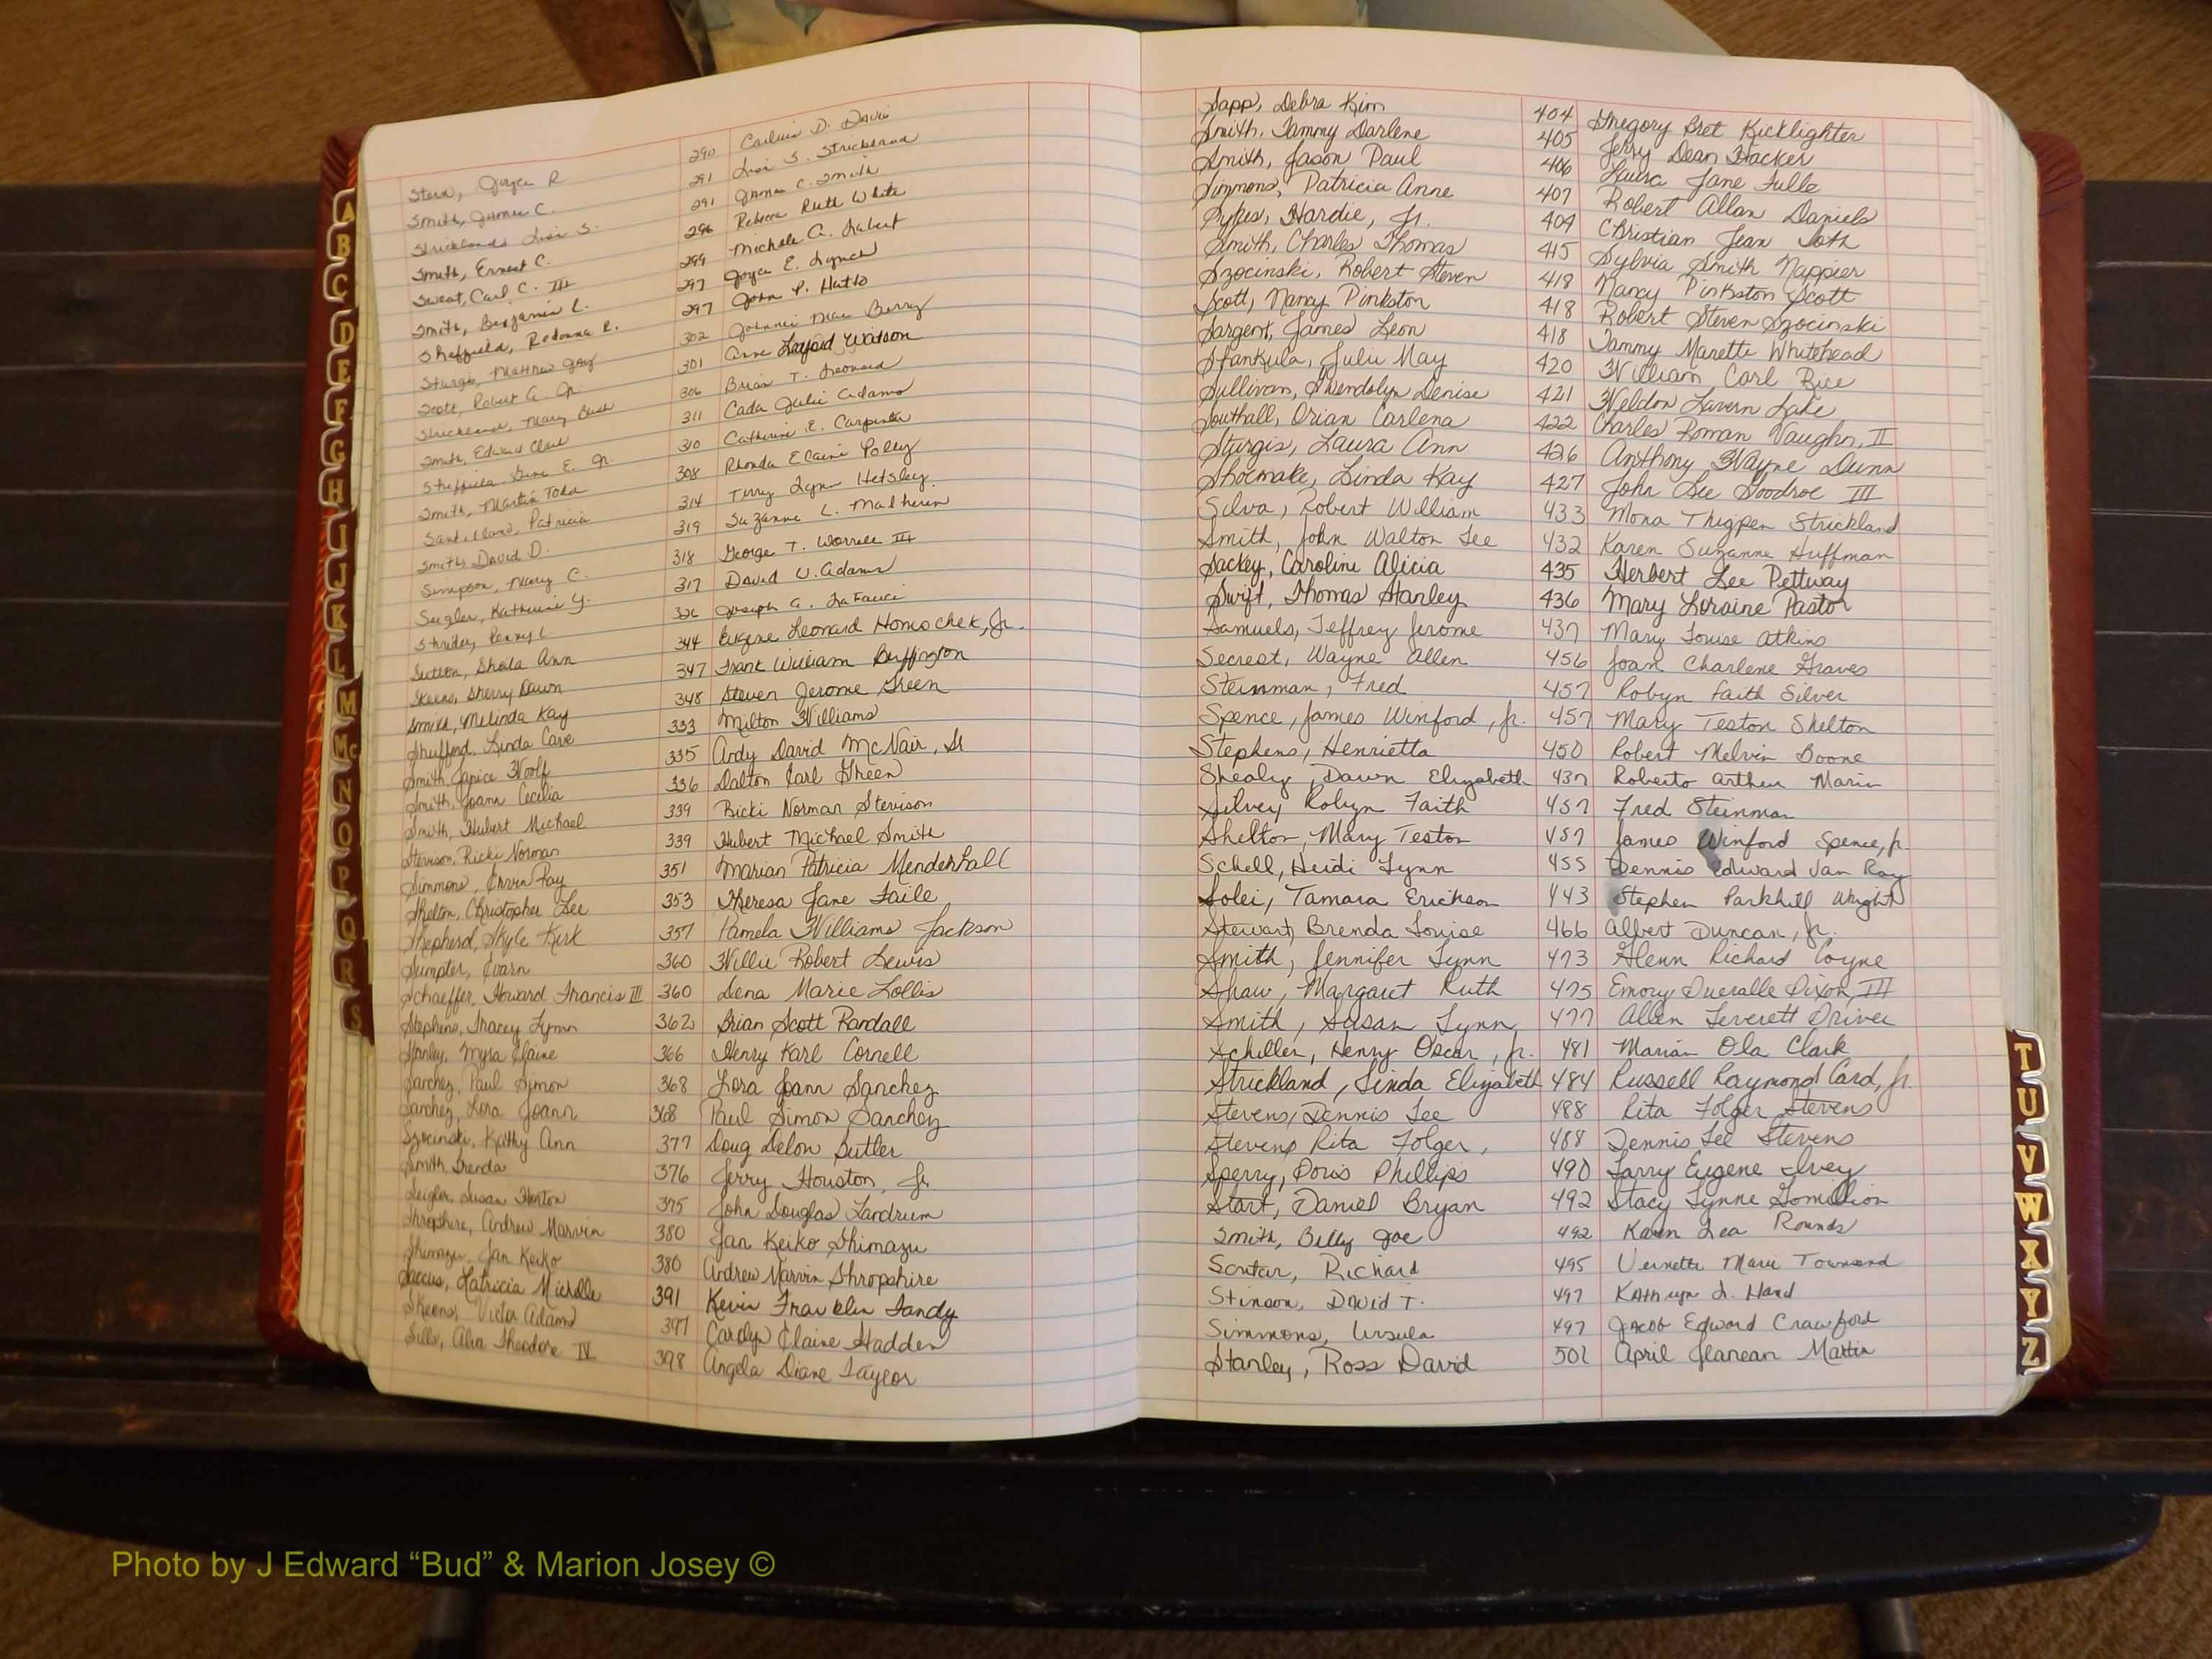 Stein, Joyce R 290 D. Davis
Smith, James C. 291 Lisi S. Strickland
Strickland, Lisi S. 291 James C. Smith
Smith, Ernest C. 296 Rebecca Ruth White
Sweat, Carl C. III 299 Michele A.
Smith, Benjamin L. 297 Joyce E. Lynch
Sheffield, Redonna R. 297 John P. Hutto
Sturgis, Matthew Guy 302 Johnnie Mae Berry
Scott, Robert A. Jr. 301 Anne Watson
Strickland, Mary Bush 306 Brian T. Leonard
Smith, Edward Clark 311 Cada Julie Adams
Sheffield, Gene E. Jr. 310 Catherine E. Carpenter
Smith, Martin Todd 308 Rhonda Elaine Polly
Patricia 314 Terry Lynn Helsley
Smith, David D. 319 Suzanne L.
Simpson, Mary C. 318 George T. Worrell III
Seigler, Katherine Y. 317 David W. Adams
Strider, Penny L. 326 Joseph A. LaFauci
Sutton, Sheila Ann 344 Eugene Leonard Homochek, Jr.
Skeens, Sherry Dawn 347 Frank William Buffington
Smith, Melinda Kay 348 Steven Jerome Green
Shufford, Linda Cave 333 Milton Williams
Smith, Janice Woolf 335 Andy David McNair, Sr
Smith, Joann Cecilia 336 Dalton Carl Green
Smith, Hubert Michael 339 Ricki Norman Stevison
Stevison, Ricki Norman 339 Hubert Michael Smith
Simmons, Ray 351 Marian Patricia Mendenhall
Shelton, Christopher Lee 353 Theresa Jane Faile
Shepherd, Skyle Kirk 357 Pamela Williams Jackson
Sumpter, 360 Willie Robert Lewis
Schaeffer, Howard Francis III 360 Dena Marie Lollis
Stephens, Tracey Lynn 362 Brian Scott Randall
Stanley, Myra Elaine 366 Henry Karl Cornell
Sanchez, Paul Simon 368 Lora Joann Sanchez
Sanchez, Lora Joann 368 Paul Simon Sanchez
Szocinski, Kathy Ann 377 Doug Delon Butler
Smith, Brenda 376 Jerry Houston, Jr.
Seigler, Susan Horton 375 John Douglas Landrum
Shropshire, Andrew Marvin 380 Jan Keiko Shimazu
Shimazu, Jan Keiko 380 Andrew Marvin Shropshire
Saccus, Latricia Michelle 391 Kevin Franklin Tandy
Skeens, Victor Adams 397 Carolyn Elaine Hadden
Sills, Alva Theodore IV 398 Angela Diane Taylor
A
B
C
D
E
F
G
H
I
J
K
L
M
Mc
N
O
P
Q
R
S
Sapp, Debra Kim 404 Gregory Bret Kicklighter
Smith, Tammy Darlene 405 Jerry Dean Hacker
Smith, Jason Paul 406 Laura Jane Tulle
Simmons, Patricia Anne 407 Robert Allan Daniels
Sykes, Hardie, Jr. 409 Christian Jean Toth
Smith, Charles Thomas 415 Sylvia Smith Nappier
Szocinski, Robert Steven 418 Nancy Pinkston Scott
Scott, Nancy Pinkston 418 Robert Steven Szocinski
Sargent, James Leon 418 Tammy Manette Whitehead
Stankula, Julie May 420 William Carl Rice
Sullivan, Gwendolyn Denise 421 Weldon Lavern Lake
Southall, Orian Carlena 422 Charles Roman Vaughn, II
Sturgis, Laura Ann 426 Anthony Wayne Dunn
Shoemake, Linda Kay 427 John Lee Goodroe III
Silva, Robert William 433 Mona Thigpen Strickland
Smith, John Walton Lee 432 Karen Suzanne Huffman
Sackey, Caroline Alicia 435 Herbert Lee Pettway
Swift, Thomas Stanley 436 Mary Loraine Pastor
Samuels, Jeffrey Jerome 437 Mary Louise Atkins
Secrest, Wayne Allen 456 Joan Charlene Graves
Steinman, Fred 457 Robyn Faith Silver
Spence, James Winford, Jr. 457 Mary Teston Shelton
Stephens, Henrietta 450 Robert Melvin Boone
Shealy, Dawn Elizabeth 437 Roberto Arthur Marin
Silvey Robyn Faith 457 Fred Steinman
Shelton, Mary Teston 457 James Winford Spence, Jr.
Schell, Heidi Lynn 455 Dennis Edward Van Roy
Solei, Tamara Erickson 443 Stephen Parkhill Wright
Stewart, Brenda Louise 466 Albert Duncan, Jr.
Smith, Jennifer Lynn 473 Glenn Richard Coyne
Shaw, Margaret Ruth 475 Emory Dueralle Dixon, III
Smith, Susan Lynn 477 Allen Leverett Driver
Schiller, Henry Oscar, Jr. 481 Marian Ola Clark
Strickland, Linda Elizabeth 484 Russell Raymond Card, Jr.
Stevens, Dennis Lee 488 Rita Folger Stevens
Stevens Rita Folger, 488 Dennis Lee Stevens
Sperry, Doris Phillips 490 Larry Eugene Ivey
Start, Daniel Bryan 492 Stacy Lynne Gomillion
Smith, Billy Joe 492 Karen Lea Rounds
Sontar, Richard 495 Vernette Marie Townsend
Stinson, David T. 497 Kathryn L. Hand
Simmons, Ursula 497 Jacob Edward Crawford
Stanley, Ross David 501 April Jeanean Martin
T
U
V
W
X
Y
Z
Photo by J Edward “Bud” & Marion Josey ©